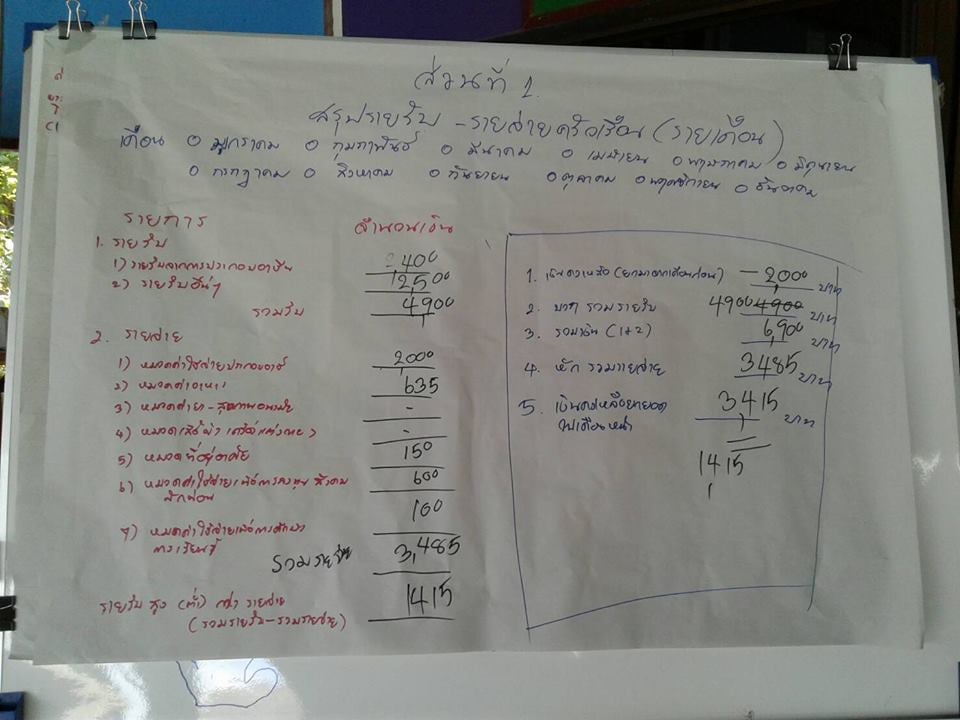 ส่วนที่ 1.
สรุปรายรับ - รายจ่ายครัวเรือน (รายเดือน)
เดือน ๐ มกราคม ๐ กุมภาพันธ์ ๐ มีนาคม ๐ เมษายน ๐ พฤษภาคม ๐ มิถุนายน
๐ กรกฎาคม ๐ สิงหาคม ๐ กันยายน ๐ ตุลาคม ๐ พฤศจิกายน ๐ ธันวาคม
รายการ จำนวนเงิน
1. รายรับ
1) รายรับจากการประกอบอาชีพ 2400
2) รายรับอื่นๆ 2500
รวมรับ 4900
2. รายจ่าย
1) หมวดค่าใช้จ่ายประกอบอาชีพ 2000
2) หมวดค่าอาหาร 635
3) หมวดค่ายา - สุขภาพอนามัย -
4) หมวดเสื้อผ้า เครื่องแต่งกาย -
5) หมวดที่อยู่อาศัย 150
6) หมวดค่าใช้จ่ายเพื่อการลงทุน สังคม 600
พักผ่อน
100
7) หมวดค่าใช้จ่ายเพื่อการศึกษา
การเรียนรู้
รวมรายจ่าย 3,485
รายรับ สูง (ต่ำ) กว่า รายจ่าย 1415
(รวมรายรับ - รวมรายจ่าย)
1. เงินคงเหลือ (ยกมาจากเดือนก่อน) - 2000 บาท
2. บวก รวมรายรับ 4900 4900 บาท
3. รวมเงิน (1+2) 6,900 บาท
4. หัก รวมรายจ่าย 3,485 บาท
5. เงินคงเหลือยกยอด 3415 บาท
ไปเดือนหน้า
1415